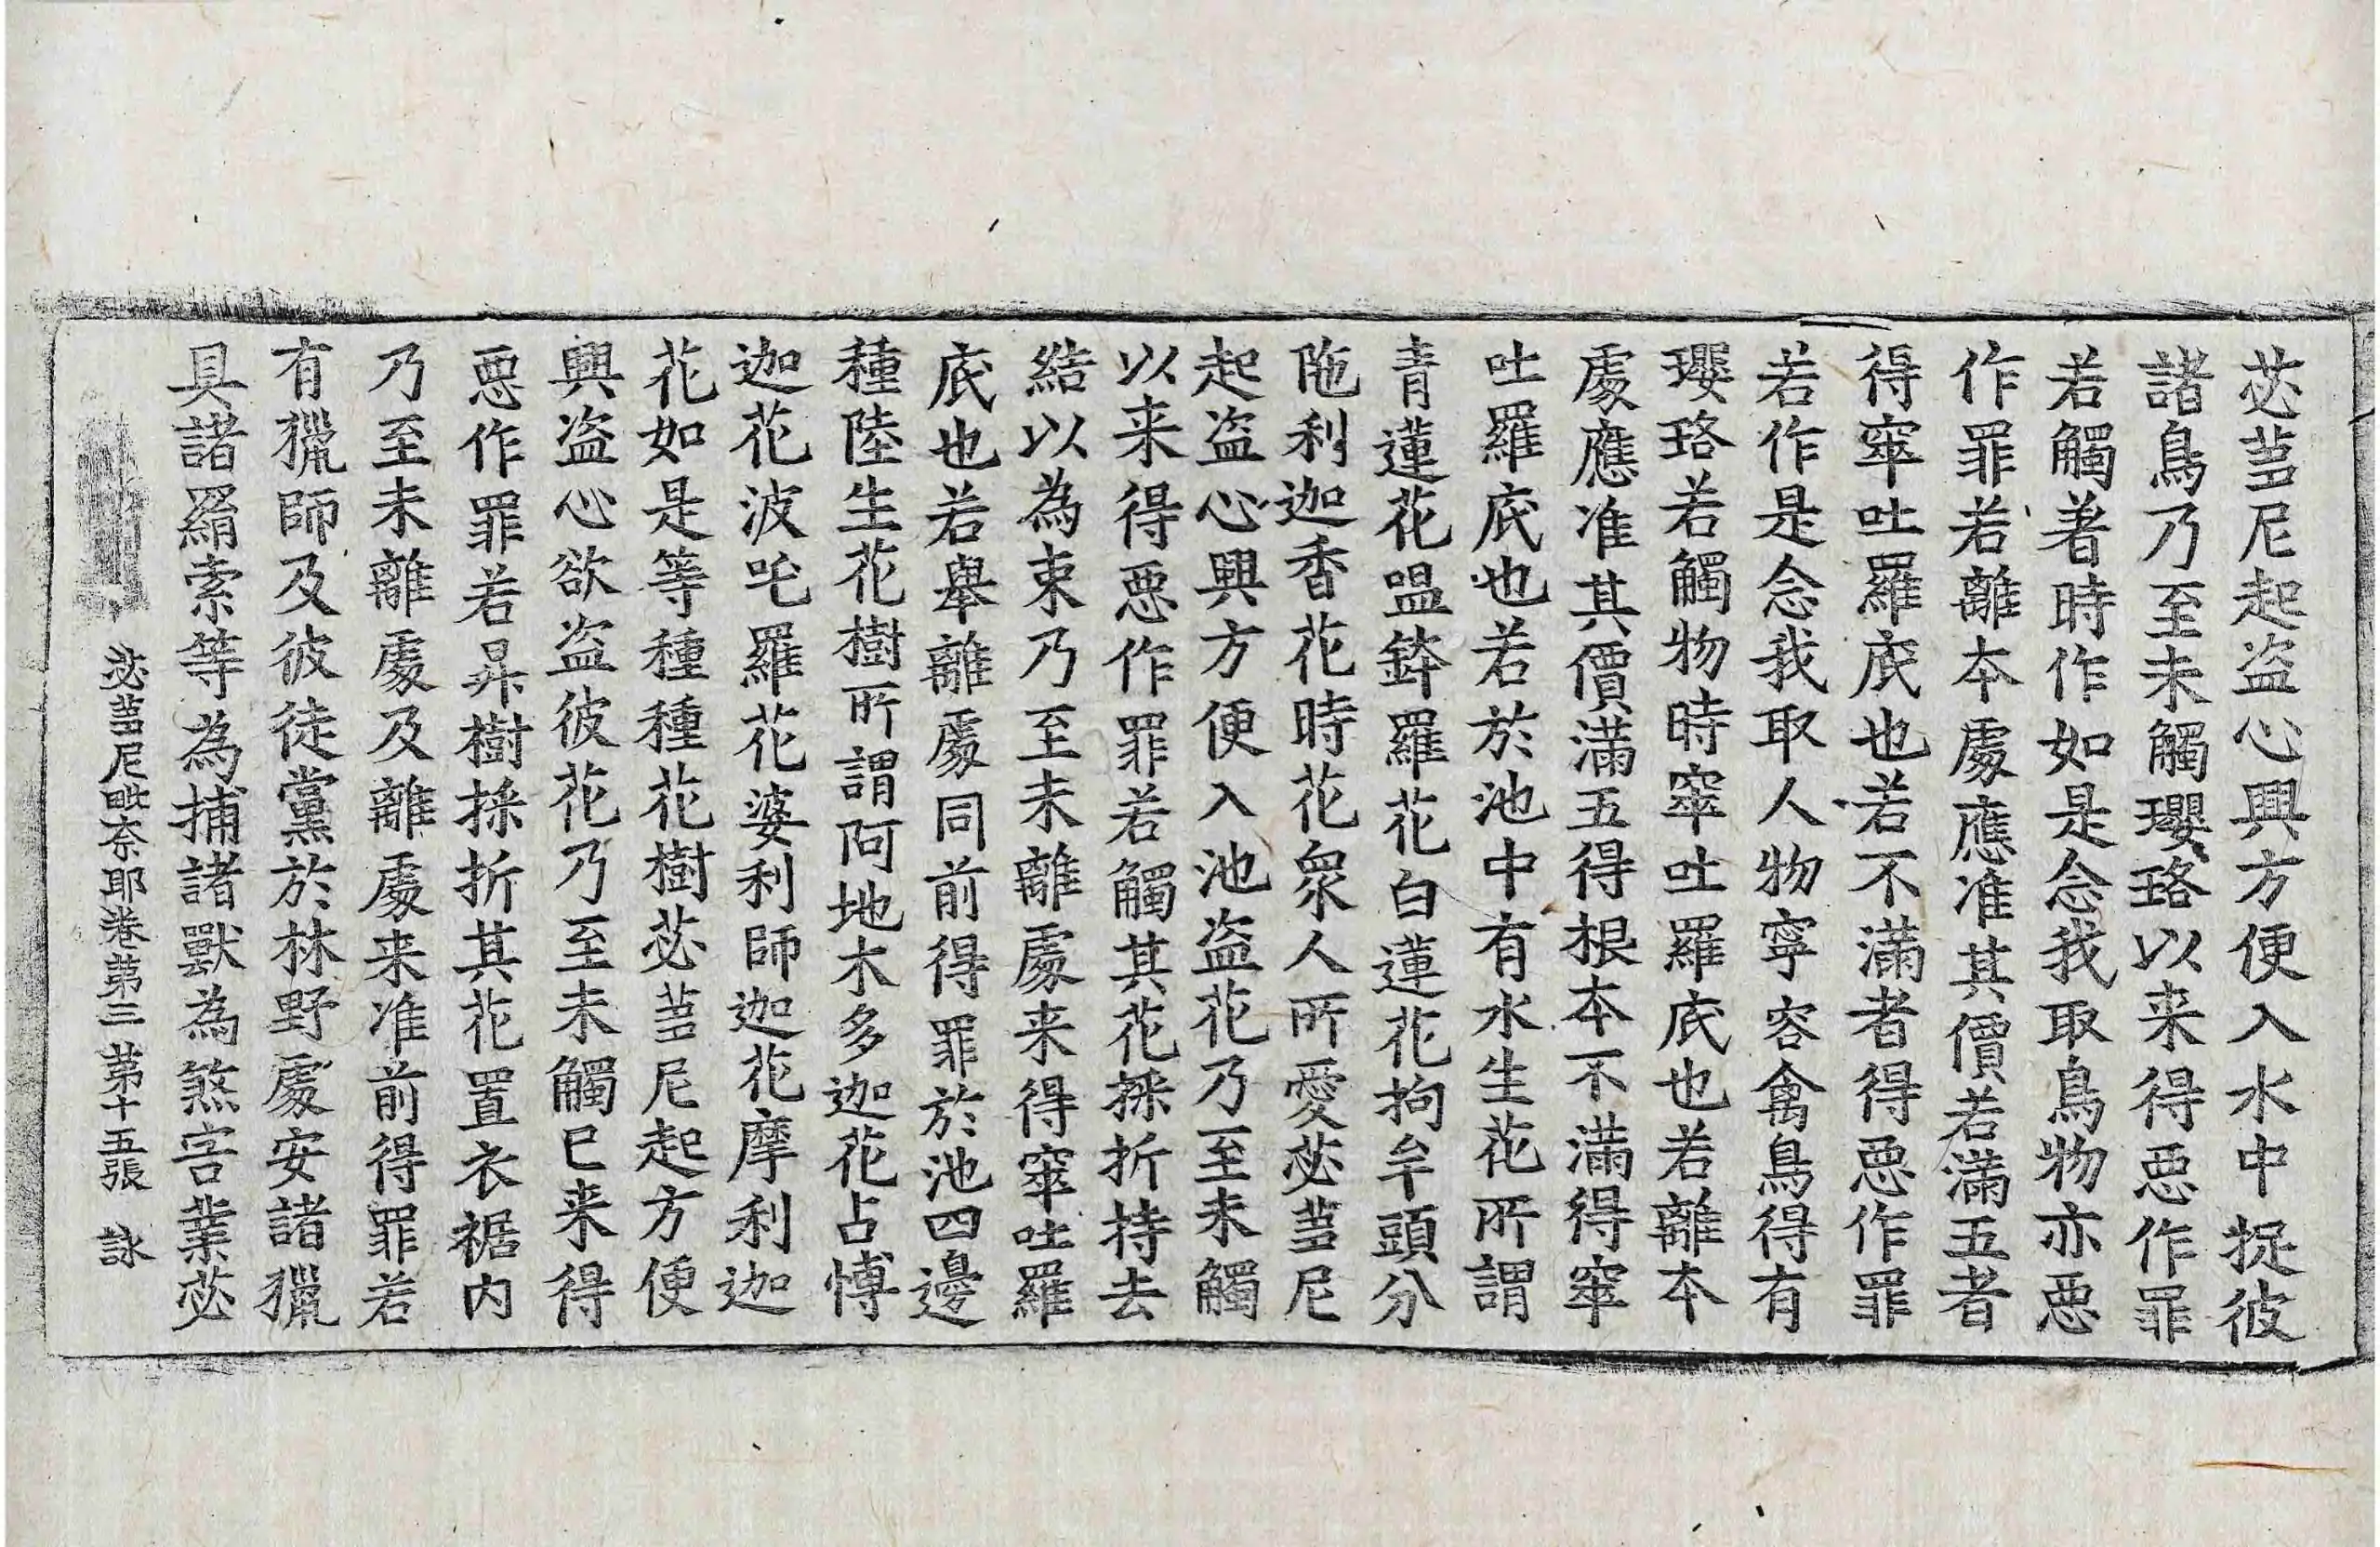 苾芻尼起盗心興方便入水中捉彼
諸鳥乃至未觸瓔珞以来得惡作罪
若觸著時作如是念我取鳥物亦惡
作罪若離本處應准其價若滿五者
得窣吐羅底也若不滿者得惡作罪
若作是念我取人物寧容禽鳥得有
瓔珞若觸物時窣吐羅底也若離本
處應准其價滿五得根本不滿得窣
吐羅底也若於池中有水生花所謂
青蓮花嗢鉢羅花白蓮花拘牟頭分
陁利迦香花時花衆人所愛苾芻尼
起盗心興方便入池盗花乃至未觸
以来得惡作罪若觸其花採折持去
結以為束乃至未離處来得窣吐羅
底也若舉離處同前得罪於池四邊
種陸生花樹所謂阿地木多迦花占愽
迦花波吒羅花婆利師迦花摩利迦
花如是等種種花樹苾芻尼起方便
興盗心欲盗彼花乃至未觸已来得
惡作罪若昇樹採折其花置衣裾内
乃至未離處及離處来准前得罪若
有獵師及彼徒黨於林野處安諸獵
具諸羂索等為捕諸獸為煞害業苾
苾芻尼毗奈耶卷第三 第十五張 詠